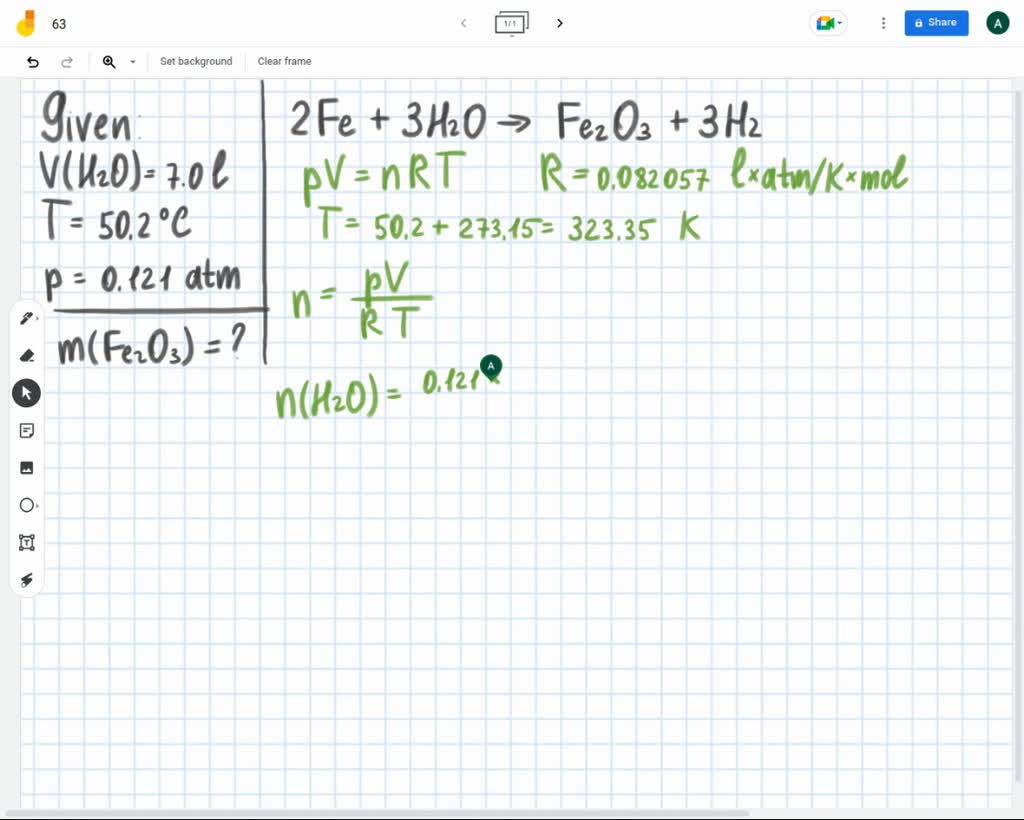 63
1/1
Share
A
Set background
Clear frame
Given:
V(H₂O) = 7.0 l
T = 50.2 °C
p = 0.121 atm
m(Fe₂O₃) = ?
2Fe + 3H₂O → Fe₂O₃ + 3H₂
pV = nRT R = 0.082057 l×atm/K×mol
T = 50.2 + 273.15 = 323.35 K
n = pV
R T
n(H₂O) = 0.121
A